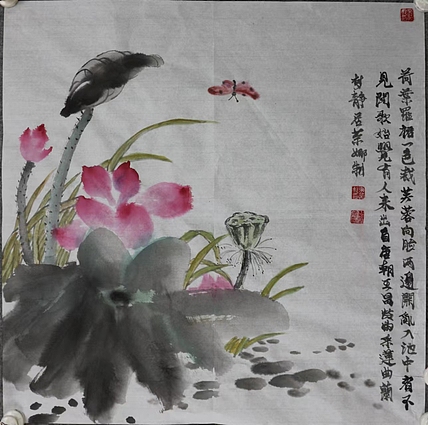 荷葉羅裙一色裁芙蓉向臉兩邊開亂入池中看不
見聞歌始覺有人来出自唐朝王昌齡采蓮曲蘭
靜居葉娜制